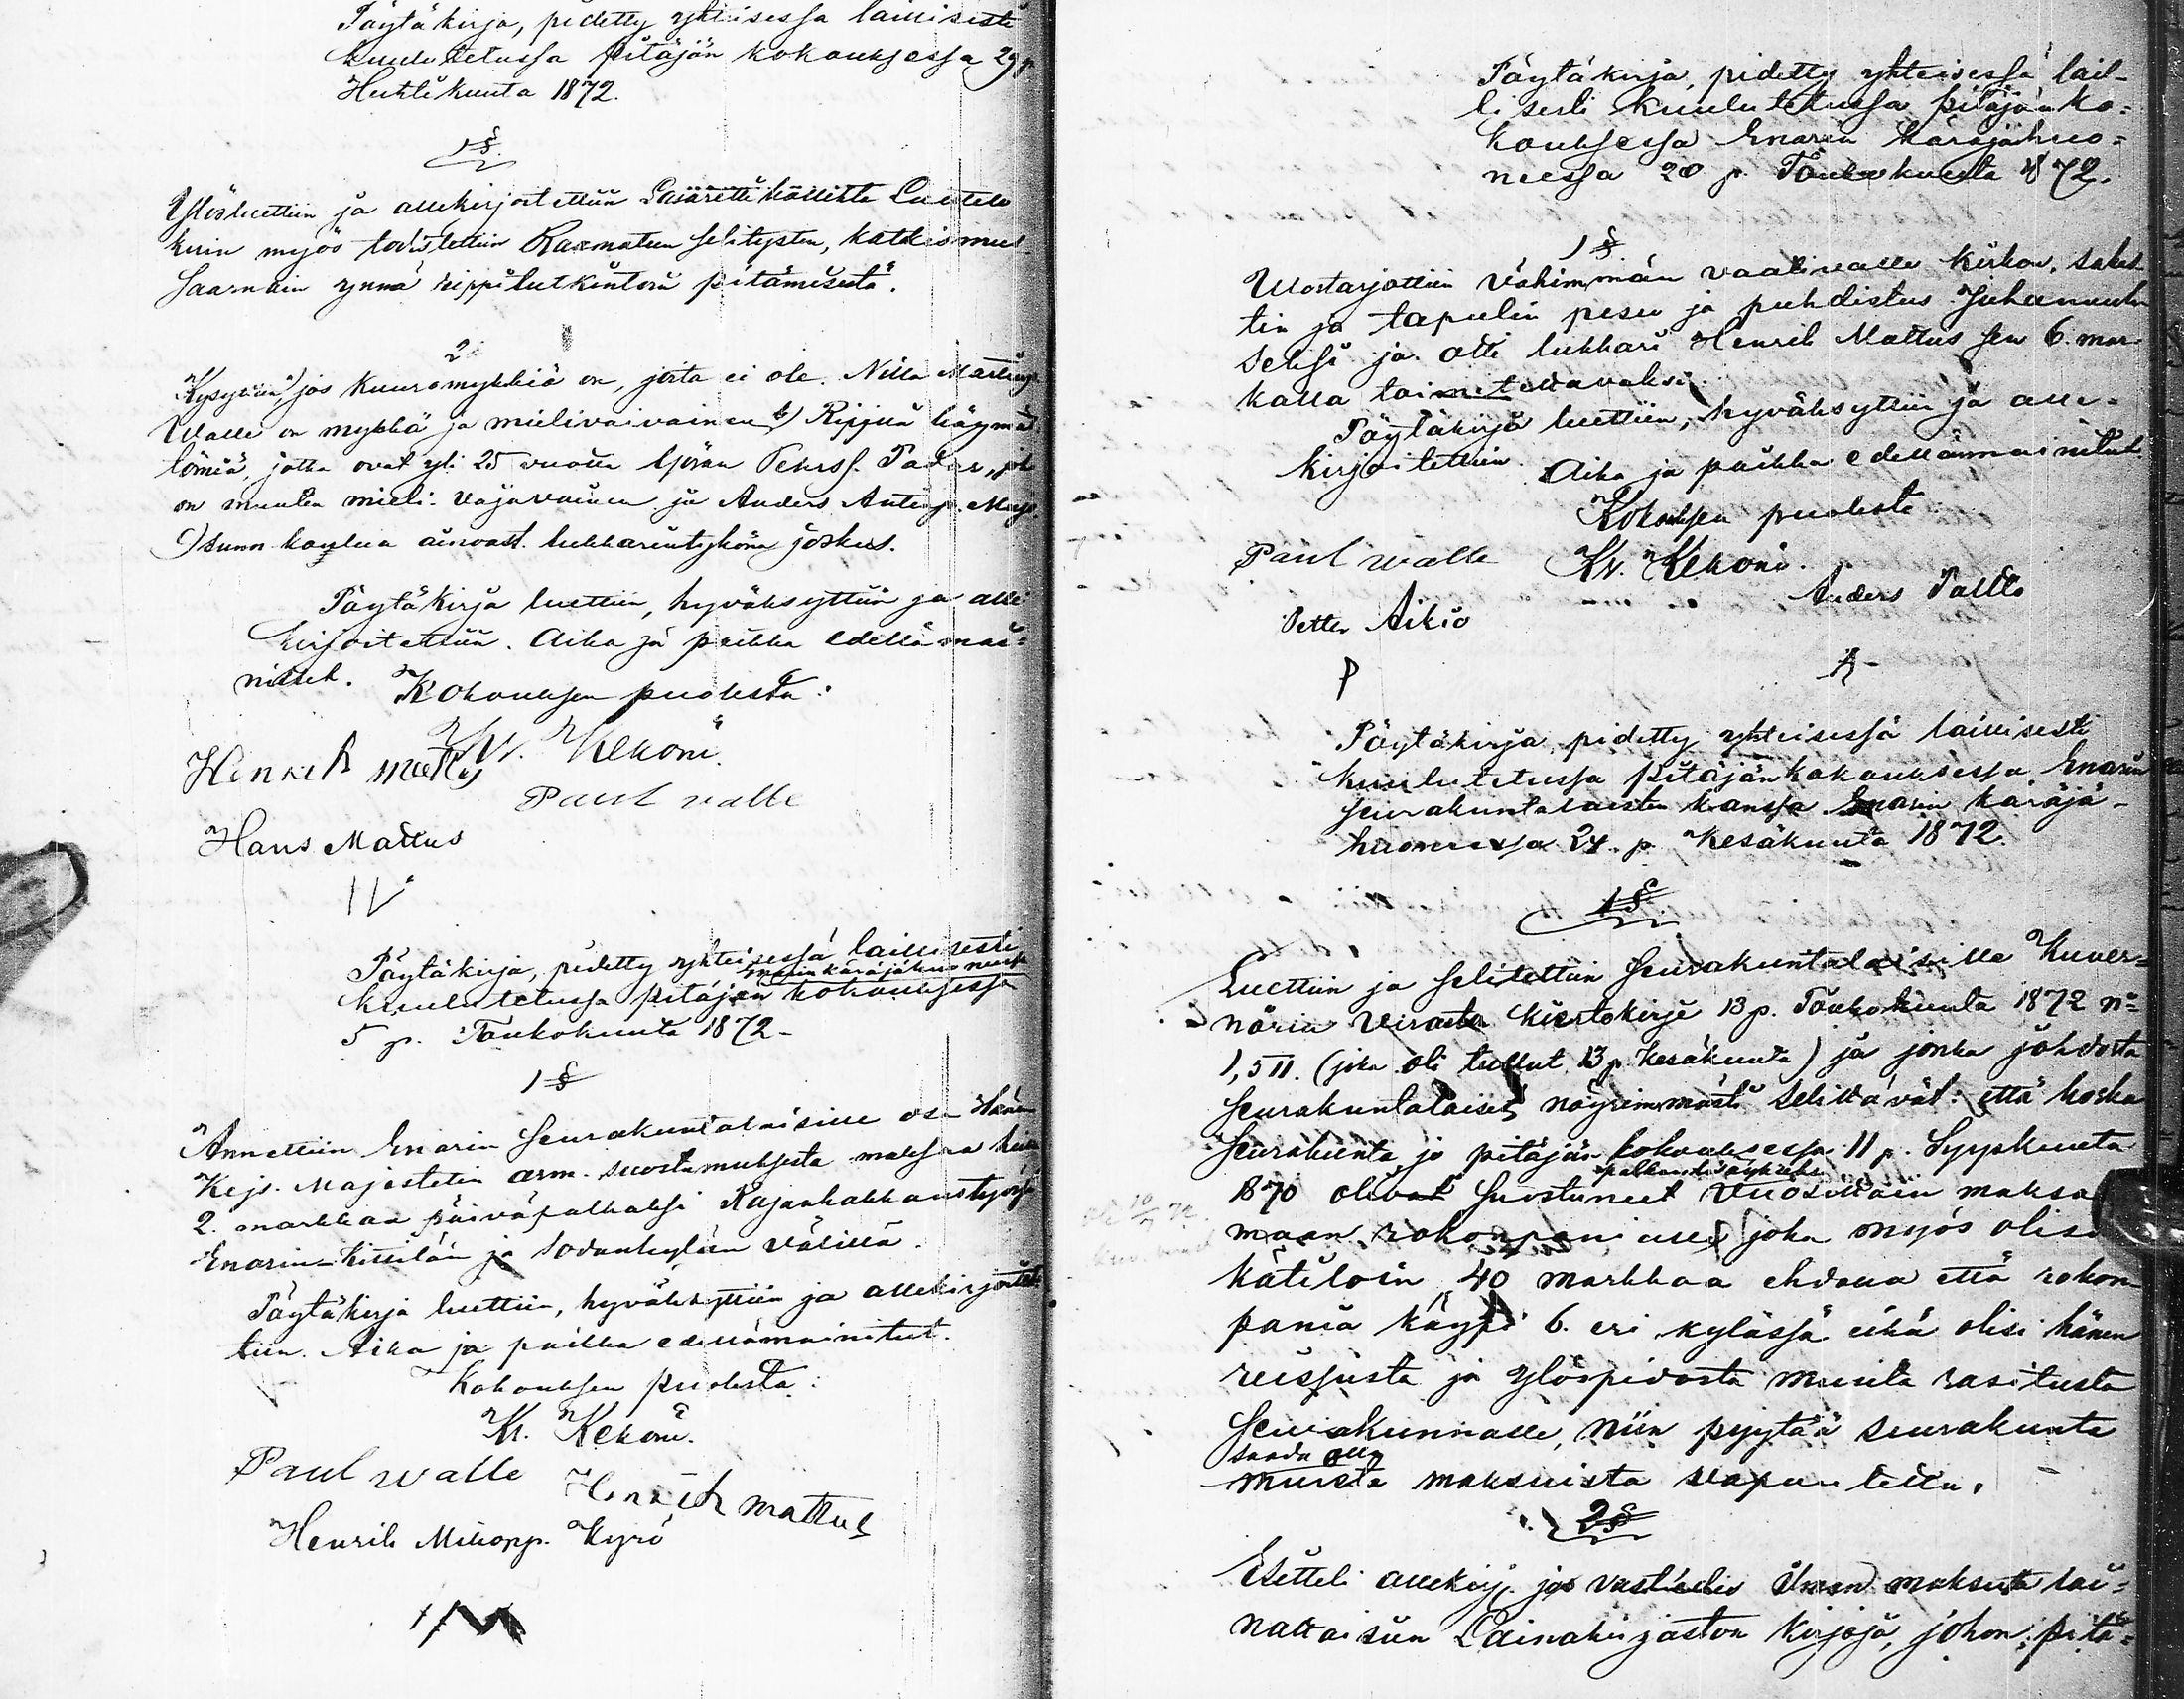 Påytåkirja, pidetty yhteisessa laillisesti
kuulutetussa pitäjän kokouksessa 29 p.
Huhtikuuta 1872.
1 §.
Ylösluettiin ja allekirjoitettiin
kuin myös todistettiin Raamatun selitysten, katkismus
saarnain ynnä rippilutkintoin pitämisestä.
2
Kysyttiin, jos kuuromykkiä on, joita ei ole. Nilla
Walle on mykkä ja mielivaivainen b) Ripjuu käymät
tömiä, jotka ovat yli 25 vuotta Pekrss. Padar, jok
on muuten mieli-vajavainen ja Anders Antinp.
c) sunn. koulua ainoast. lukkarintykönä joskus.
Påytåkirja luettiin, hyväksyttiin ja alle
kirjoitettiin. Aika ja paikka edellä mai=
nitut. Kokouksen puolesta:
Kekoni.
Henrik Paul walle
Hans Mattus
IV
Påytåkirja, pidetty yhteisessä laillisesti
Enarin käräjähuoneessa
kuulutetussa pitäjän kokouksessa
5 p. Toukokuuta 1872-
1 §
Annettiin Enarin Seurakuntalaisille osa Hänen
Kejs. Majestetin arm. suostumuksesta maksaa
2. markkaa päiväpalkaksi Rajanhakkaustyössä
Enarin-Kittilän ja Sodankylän välillä.
Påytåkirja luettiin, hyväksyttiin ja allekirjoitet
tiin. Aika ja paikka edellämainitut.
Kokouksen puolesta:
Kr. Kekoni.
Paul walle Henrik mattus
Henrik Mikonp. Kyrö
Påytåkirja, pidetty yhteisessä lail-
lisesti kuulutetussa pitäjän ko=
kouksessa Enarin käräjähuo=
neessa 20 p. Toukokuuta 1872.
1 §.
Ulostarjottiin vähimmän vaativalle kirkon, sakas
tin ja tapulin pesu ja puhdistus Juhannuk
seksi ja otti lukkari Henrik Mattus sen 6 mar-
kalla toimitettavaksi.
Påytåkirja luettiin, hyväksyttiin ja alle-
kirjoitettiin. Aika ja paikka edellämainitut
Kokouksen puolesta
Paul walle Kr. Kekoni.
Anders Palto
Petter Aikio
P A
Påytåkirja, pidetty yhteisessä laillisesti
kuulutetussa pitäjänkokouksessa Enarin
seurakuntalaisten kanssa Enarin käräjä-
huoneessa 24. p. Kesäkuuta 1872.
1 §
Luettiin ja selitettiin seurakuntalaisille Kuver=
nörin viraston kiertokirje 13 p. Toukokuuta 1872 no
1,511. (joka oli tullut 13 p. Kesäkuuta) ja jonka johdosta
seurakuntalaiset nöyrimmästi selittävät: että koska
seurakunta jo pitäjän kokouksessa 11 p. Syyskuuta
1870 olivat suostuneet vuosittain maksa
maan rokonpaniialle, joka myös olisi
kätilöin, 40 markkaa ehdolla että rokon-
pania käypi 6. eri kylässä eikä olisi hänen
reissusta ja ylöspidosta muuta rasitusta
seurakunnalle, niin pyytää seurakunta
saada olla
muista maksuista vapautettu.
2 §
Esitteli allekirj. jos vastedes ilman maksuta lai=
nattaisiin Lainakirjaston kirjoja, johon pitä=